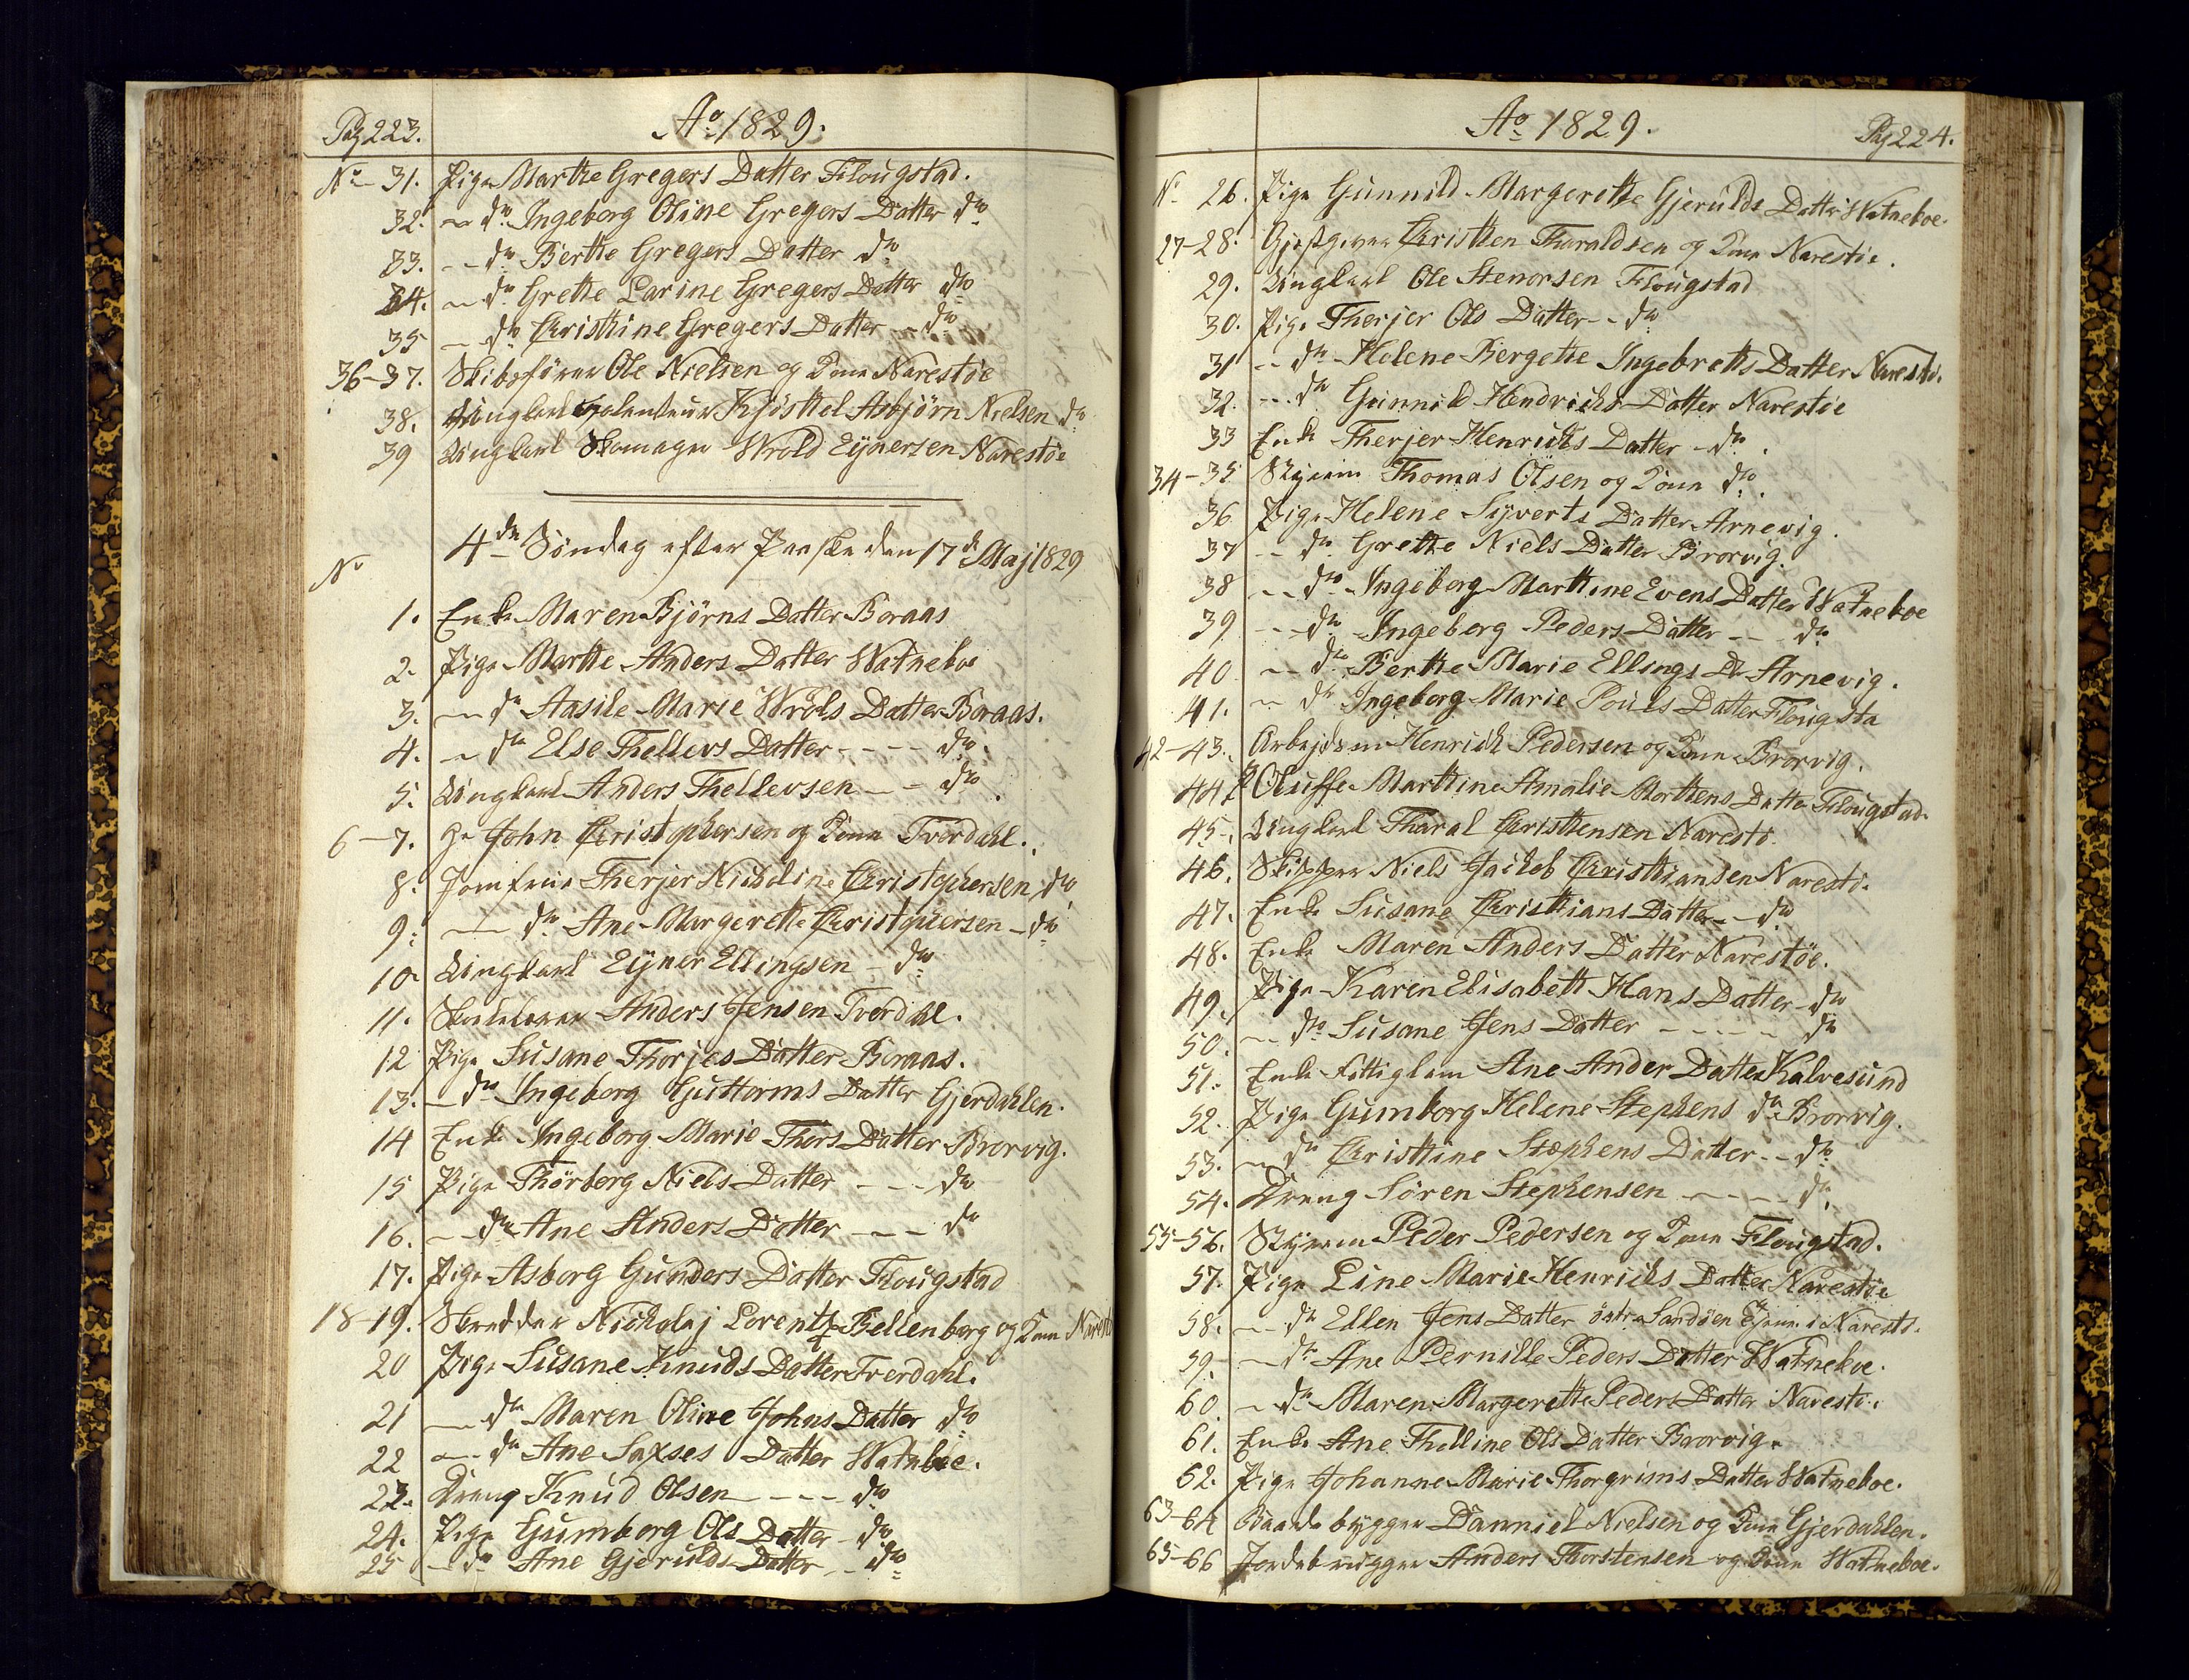 Pag 223.
Ao 1829.
No 31. Pige Marthe Gregers Datter Flougstad.
32. — do Ingeborg Oline Gregers Datter do
33. — do Berthe Gregers Datter do
34. — do Grethe Larine Gregers Datter do
35 — do Christhine Gregers Datter — do
36-37. Skibsfører Ole Nielsen og Kone Narestøe
38. Ungkarl Kjøsthel Asbjørn Nielsen do
39 Ungkarl Skomager Wrold Eynersen Narestøe
4de Søndag efter Paaske den 17de Maj 1829
No
1. Enke Maren Bjørns Datter Boraas
2. Pige Marthe Anders Datter Watneboe
3. — do Aasile Marie Wrols Datter Boraas.
4. — do Else Thellevs Datter - - - - do.
5. Ungkarl Anders Thellevsen - - do
6-7. Hr John Christophersen og Kone Tverdahl.
8. Jomfrue Therjer Nicholine Christophersen do
9. — do Ane Margerethe Christophersen - do
10 Ungkarl Eyner Ellingsen - do
11. Skolelærer Anders Jensen Tverdahl.
12 Pige Susane Thorjes Datter Boraas.
13. - do Ingeborg Guttorms Datter Gjerdahlen.
14 Enke Ingeborg Marie Thors Datter Brorvig.
15 Pige Thørborg Niels Datter - - - do
16. - do Ane Anders Datter - - - do
17. Pige Asborg Gunders Datter Flougstad
18-19. Skredder Nickolaj Lorentz Bellenborg og Kone Narest
20 Pige Susane Knuds Datter Tverdahl.
21 — do Maren Oline Johns Datter do
22 — do Ane Saxses Datter Watneboe.
23. Dreng Knud Olsen - - - do
24. Pige Gumborg Ols Datter - do
25 - do Ane Gjerulds Datter - do
Ao 1829.
Pag 224.
No 26. Pige Gunnild Margerethe Gjerulds Datter Watneboe.
27-28. Gjæstgiver Christhen Tharaldsen og Kone Narestøe.
29. Ungkarl Ole Stenorsen Flougstad
30. Pige Therjer Ols Datter - - do
31 - - do Helene Bergette Ingebretts Datter Narestø.
32. - - do Gunnild Hendrichs Datter Narestøe
33 Enke Therjer Henrichs Datter - do.
34-35 Styrm Thomas Olsen og Kone do.
36 Pige Helene Syverts Datter Arnevig.
37 - - do Grethe Niels Datter Brorvig.
38 - - do Ingeborg Marthine Evens Datter Watneboe
39 - - do Ingeborg Peders Datter - - do
40 - do Berthe Marie Ellings Dr Arnevig.
41. - do Ingeborg Marie Pouls Datter Flougsta
42-43. Arbejdsm Henrich Pedersen og Kone Brorvig.
44. P Oluffe Marthine Amalie Morthens Datter Flougstad.
45. Ungkarl Tharal Christhensen Narestø.
46. Skipper Niels Jachob Christhiansen Narestø.
47. Enke Susane Christhians Datter - - do
48. Enke Maren Anders Datter Narestøe.
49. Pige Karen Elisabeth Hans Datter - do
50. - do Susane Jens Datter - - - - - do
51. Enke Fattiglem Ane Ander Datter Kalvesund
52. Pige Gumborg Helene Stephens do Brorvig.
53. - do Christhine Stephens Datter - - do
54. Dreng Søren Stephensen - - - - do.
55-56. Styrm Peder Pedersen og Kone Flougstad.
57. Pige Line Marie Henrichs Datter Narestøe
58. - - do Ellen Jens Datter østre Sandøen tjenn i Narestø.
59. - do Ane Pernille Peders Datter Watneboe.
60. - do Maren Margerethe Peders Datter Narestø.
61. Enke Ane Thelline Ols Datter Brorvig.
62. Pige Johanne Marie Thorgrims Datter Watneboe.
63-64 Baadebygger Danniel Nielsen og Kone Gjerdahlen.
65-66 Jordebrugger Anders Thorstensen og Kone Watneboe.